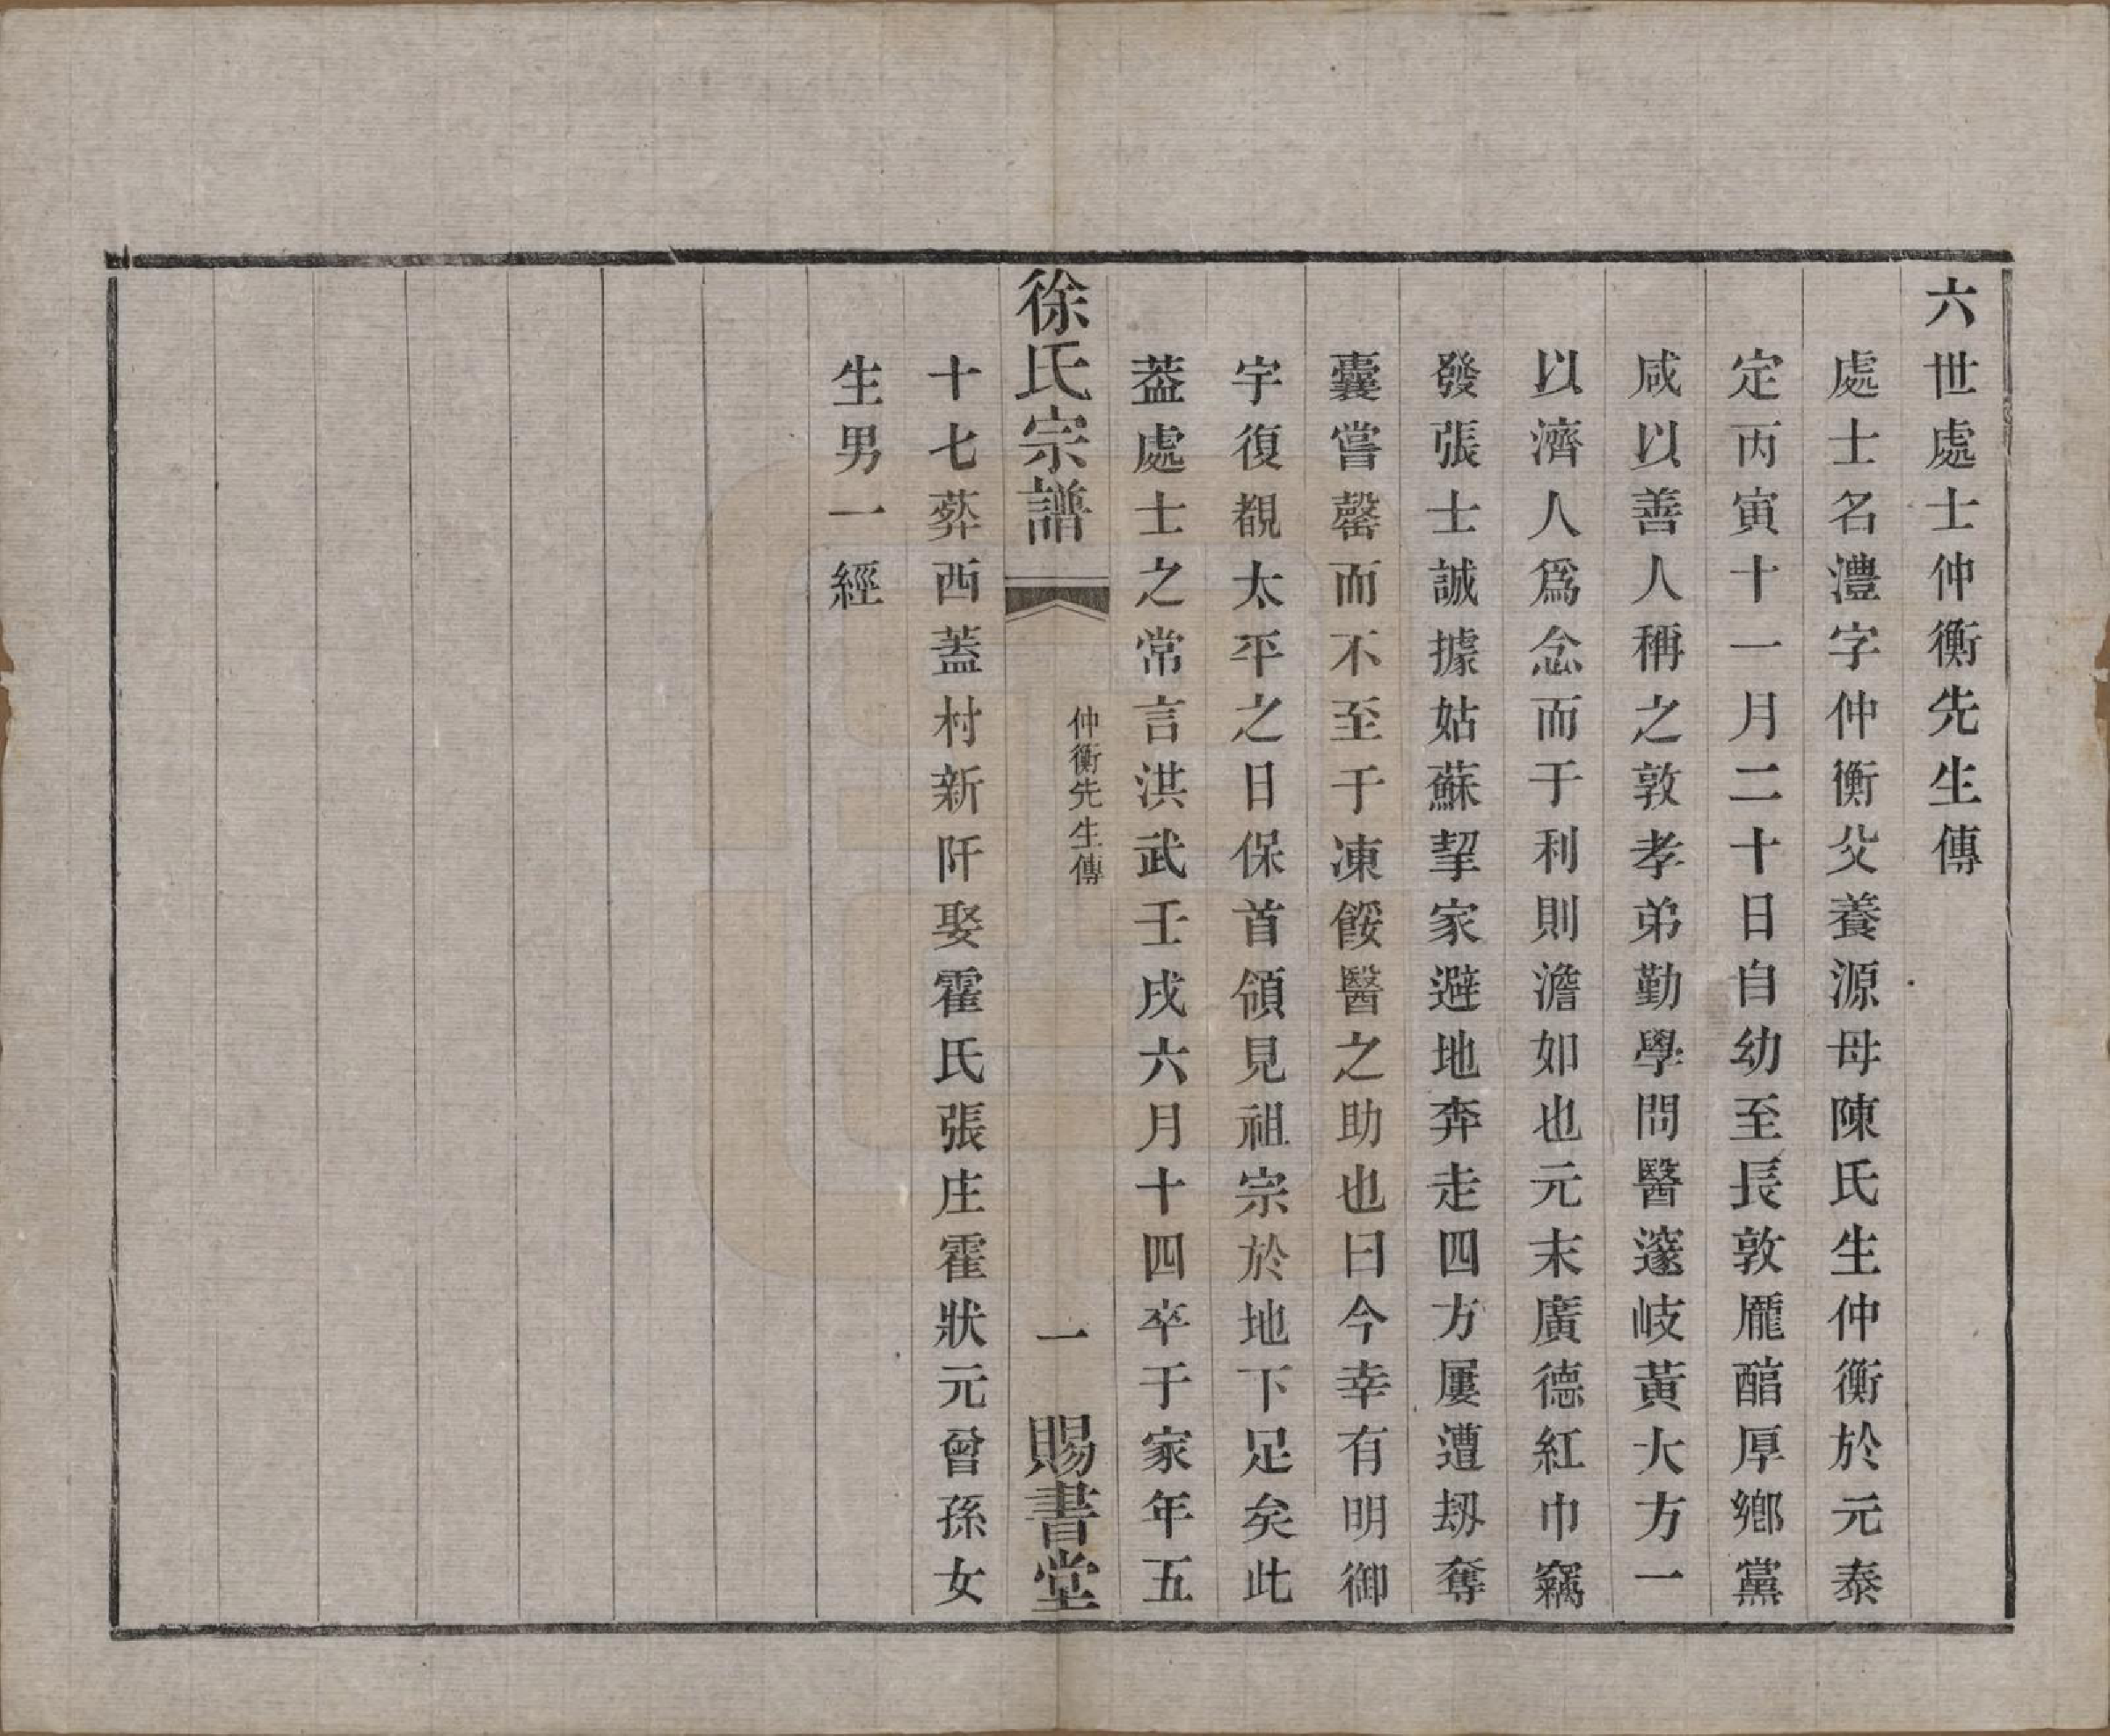 六世處士仲衡先生傳
處士名澧字仲衡父養源母陳氏生仲衡於元泰
定丙寅十一月二十日自幼至長敦龎酯厚鄉黨
咸以善人稱之敦孝弟勤學問醫邃岐黃大方一
以濟人爲念而于利則澹如也元末廣德紅巾竊
發張士誠據姑蘇挈家避地奔走四方屢遭刼奪
囊嘗罄而不至于凍餒醫之助也曰今幸有明御
宇復覩太平之日保首領見祖宗於地下足矣此
葢處士之常言洪武壬戌六月十四卒于家年五
徐氏宗譜
仲衡先生傳
一
賜書堂
十七葬西蓋村新阡娶霍氏張庄霍狀元曾孫女
生男一經